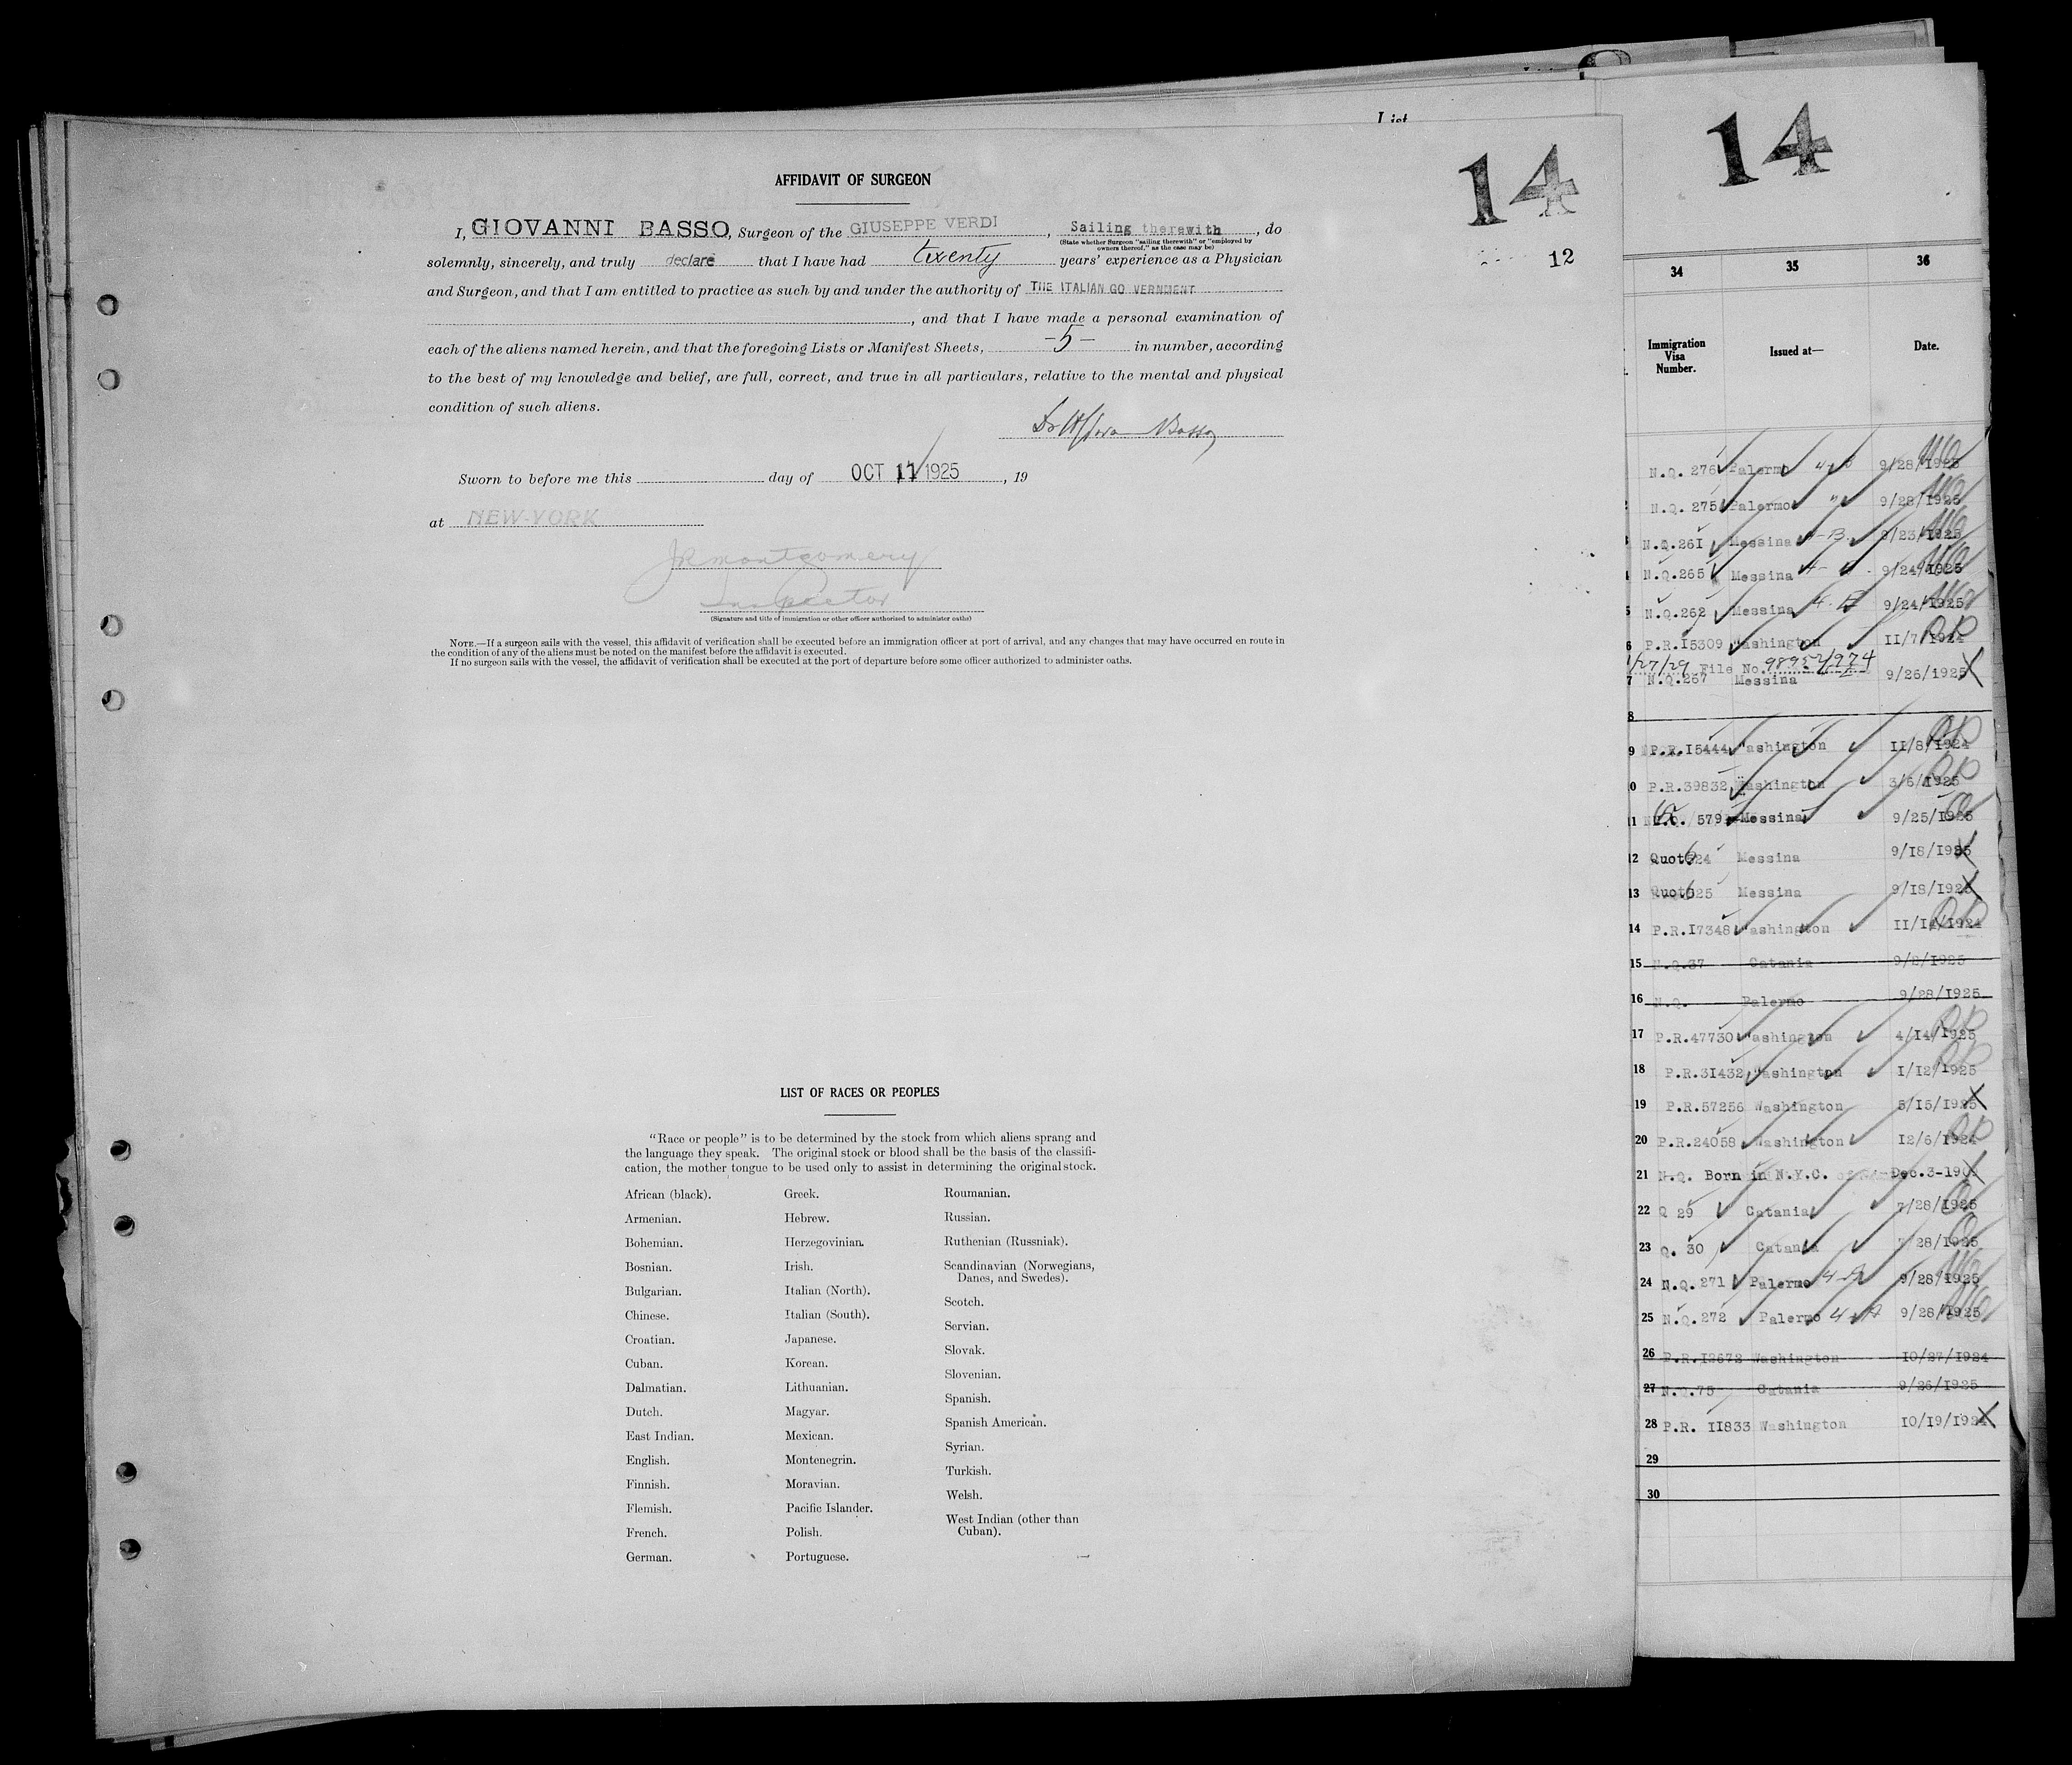 List
14
14
12
AFFIDAVIT OF SURGEON
I, GIOVANNI BASSO, Surgeon of the GIUSEPPE VERDI, Sailing therewith, do
(State whether Surgeon "sailing therewith" or "employed by
owners thereof," as the case may be)
solemnly, sincerely, and truly declare that I have had twenty years' experience as a Physician
and Surgeon, and that I am entitled to practice as such by and under the authority of THE ITALIAN GO VERNMENT
, and that I have made a personal examination of
each of the aliens named herein, and that the foregoing Lists or Manifest Sheets, -5- in number, according
to the best of my knowledge and belief, are full, correct, and true in all particulars, relative to the mental and physical
condition of such aliens.
Basso
Sworn to before me this day of OCT 11 1925, 19
at NEW-YORK
JR Montgomery
Inspector
(Signature and title of immigration or other officer authorized to administer oaths)
NOTE.—If a surgeon sails with the vessel, this affidavit of verification shall be executed before an immigration officer at port of arrival, and any changes that may have occurred en route in
the condition of any of the aliens must be noted on the manifest before the affidavit is executed.
If no surgeon sails with the vessel, the affidavit of verification shall be executed at the port of departure before some officer authorized to administer oaths.
LIST OF RACES OR PEOPLES
"Race or people" is to be determined by the stock from which aliens sprang and
the language they speak. The original stock or blood shall be the basis of the classifi-
cation, the mother tongue to be used only to assist in determining the original stock.
African (black).
Armenian.
Bohemian.
Bosnian.
Bulgarian.
Chinese.
Croatian.
Cuban.
Dalmatian.
Dutch.
East Indian.
English.
Finnish.
Flemish.
French.
German.
Greek.
Hebrew.
Herzegovinian.
Irish.
Italian (North).
Italian (South).
Japanese.
Korean.
Lithuanian.
Magyar.
Mexican.
Montenegrin.
Moravian.
Pacific Islander.
Polish.
Portuguese.
Roumanian.
Russian.
Ruthenian (Russniak).
Scandinavian (Norwegians,
Danes, and Swedes).
Scotch.
Servian.
Slovak.
Slovenian.
Spanish.
Spanish American.
Syrian.
Turkish.
Welsh.
West Indian (other than
Cuban).
34 35 36
Immigration
Visa
Number.
Issued at—
Date.
N.Q. 276 Palermo 9/28/1925
N.Q. 275 Palermo " 9/28/1925
N.Q.261 Messina 9/23/1925
N.Q.265 Messina 9/24/1925
5 N.Q.262 Messina 9/24/1925
6 P.R.15309 Washington 11/7/1924
1/27/29 File No.
7 N.Q.267 Messina 9/26/1925
8
9 P.R.15444 Washington 11/8/1924
0 P.R.39832 Washington 3/6/1925
11 579 Messina 9/25/1925
12 Quot 24 Messina 9/18/1925
13 Quot 25 Messina 9/18/1925
14 P.R.17348 Washington 1924
15 N.Q.37 Catania 9/2/1925
16 N.Q. Palermo 9/28/1925
17 P.R.47730 Washington 4/14/1925
18 P.R.31432 Washington 1/12/1925
19 P.R.57256 Washington 5/15/1925
20 P.R.24058 Washington 12/6/1924
21 N.Q. Born in N.Y.C. Dec.3-190
22 Q 29 Catania 7/28/1925
23 Q. 30 Catania 7/28/1925
24 N.Q.271 Palermo 9/28/1925
25 N.Q.272 Palermo 4-A 9/28/1925
26 P.R.13672 Washington 10/27/1924
27 N.Q.75 Catania 9/26/1925
28 P.R. 11833 Washington 10/19/1924
29
30